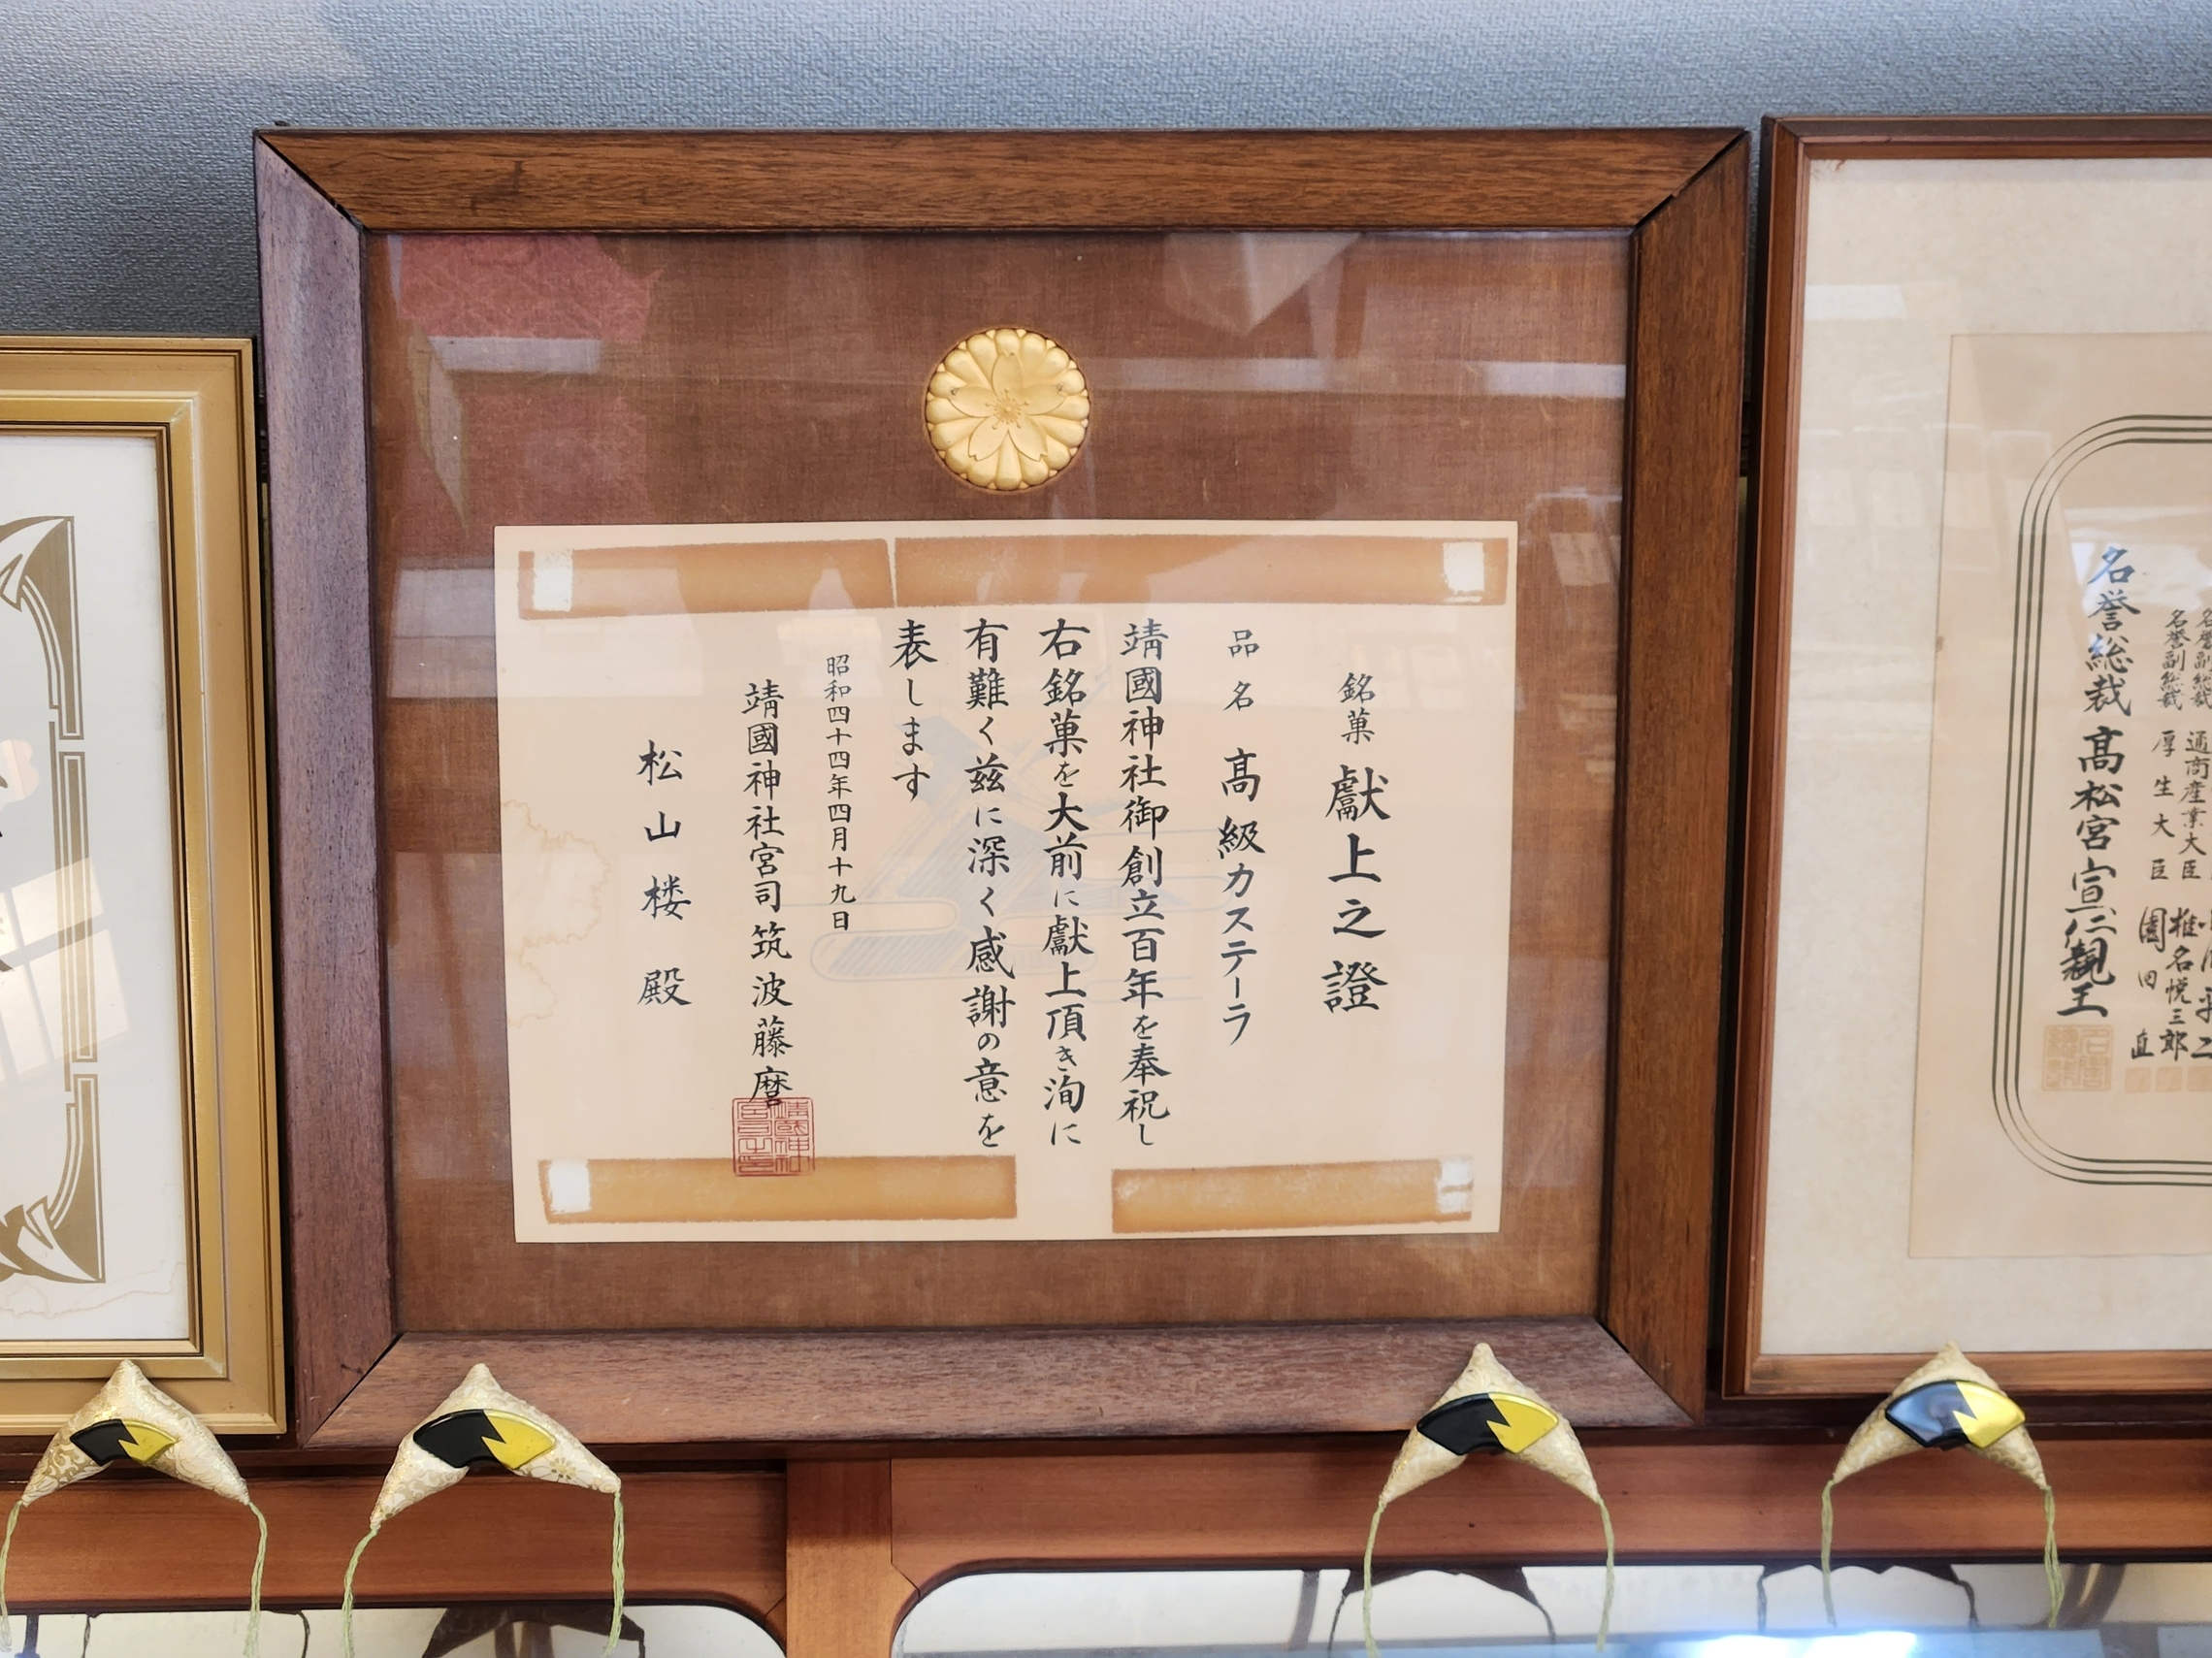 銘菓 獻上之證
品名 髙級カステーラ
靖國神社御創立百年を奉祝し
右銘菓を大前に獻上頂き洵に
有難く茲に深く感謝の意を
表します
昭和四十四年四月十九日
靖國神社宮司 筑波藤麿
松山楼殿
通商産業大臣 椎名悦三郎
名誉副総裁 厚生大臣 園田直
名誉総裁 髙松宮宣仁親王